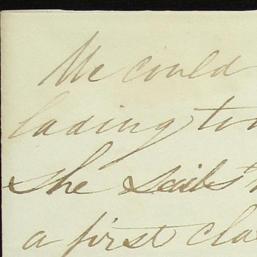 We could
lading to
she sails
a first cla